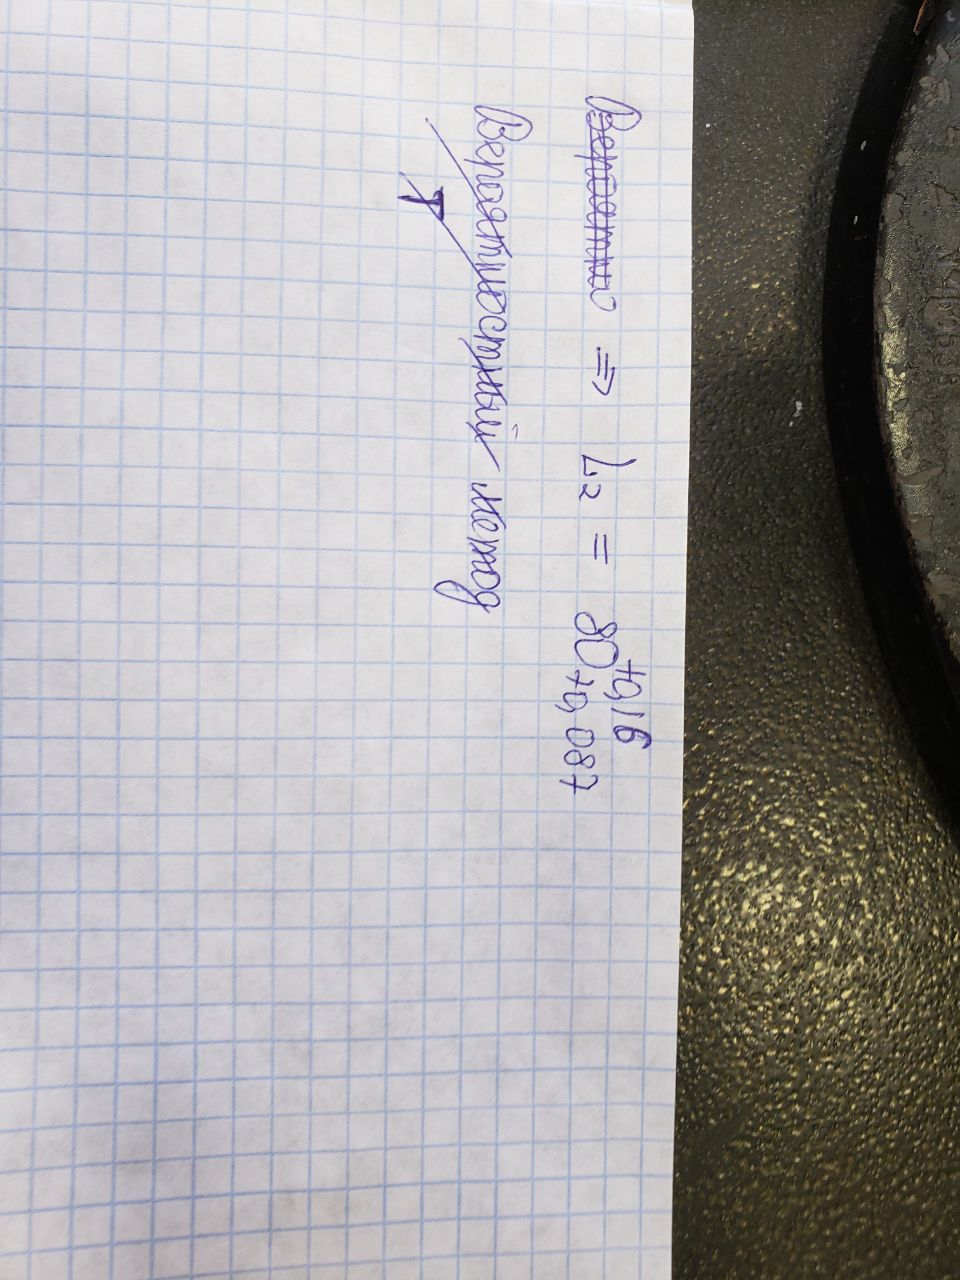 Вероятно ⇒ L₂ = 80 +0,16 +0,087
Вероятностный метод
Т